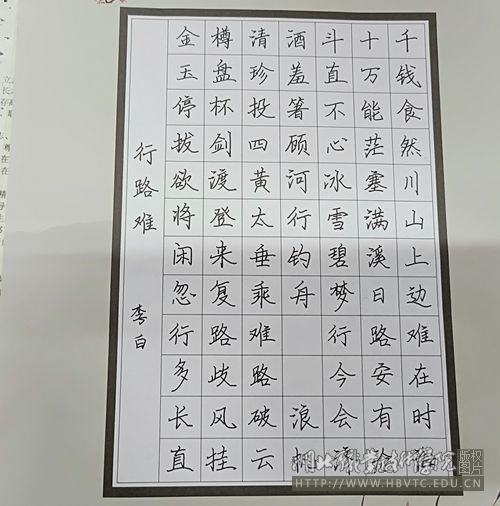 行路难
李白
金樽清酒斗十千
玉盘珍羞直万钱
停杯投箸不能食
拔剑四顾心茫然
欲渡黄河冰塞川
将登太行雪满山
闲来垂钓碧溪上
忽复乘舟梦日边
行路难 行路难
多歧路 今安在
长风破浪会有时
直挂云帆济沧海
湖北职业技术学院 版权图片
HTTP://WWW.HBVTC.EDU.CN